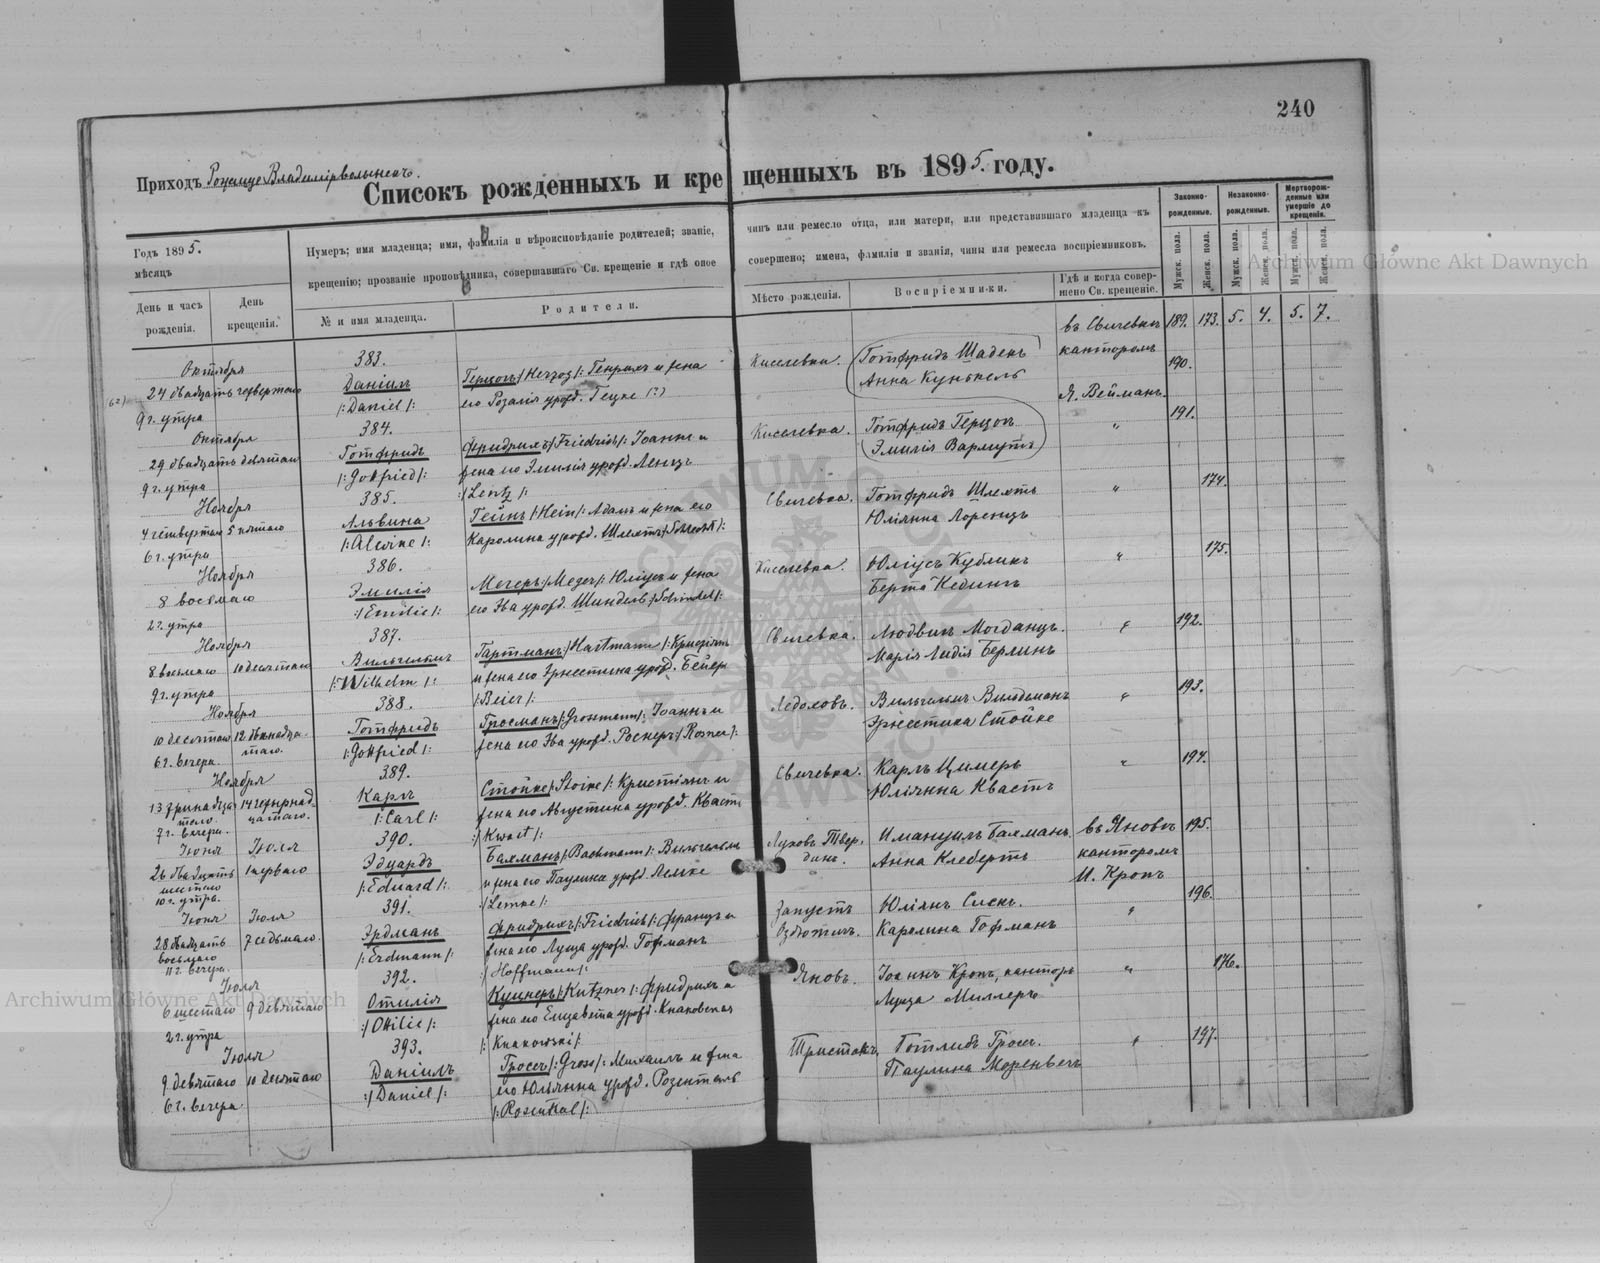 240
Приходъ Рожище Владимірволынскъ.
Списокъ рожденныхъ и крещенныхъ въ 1895. году.
Годъ 1895.
мѣсяцъ
День и часъ рожденія.
День крещенія.
Нумеръ; имя младенца; имя, фамилія и вѣроисповѣданіе родителей; званіе, чинъ или ремесло отца, или матери, или представившаго младенца къ
крещенію; прозваніе проповѣдника, совершавшаго Св. крещеніе и гдѣ оное совершено; имена, фамиліи и званія, чины или ремесла воспріемниковъ.
№ и имя младенца.
Родители.
Мѣсто рожденія.
Воспріемники.
Гдѣ и когда совершено Св. крещеніе.
Законно-рожденные.
Незаконно-рожденные.
Мертворожденные или умершіе до крещенія.
Мужск. пола.
Женск. пола.
Мужск. пола.
Женск. пола.
Мужск. пола.
Женск. пола.
189. 173. 5. 4. 5. 7.
Октября
24 двадцать четвертаго
9 г. утра
383.
Даніилъ
/:Daniel/:
Герцогъ/:Herzog/: Генрихъ и жена
его Розалія урожд. Гецке (?)
Киселевка.
Готфридъ Шаденъ
Анна Кунькель
въ Свичевкѣ
канторомъ
Я. Вейманъ.
190.
Октября
29 двадцать девятаго
9 г. утра
384.
Готфридъ
/:Gottfried/:
Фридрихъ/:Friedrich/: Іоаннъ и
жена его Эмилія урожд. Ленцъ
:/Lentz/:
Киселевка.
Готфридъ Герцогъ
Эмилія Вармутъ
"
191.
Ноября
4 четвертаго 5 пятаго
6 г. утра
385.
Альвина
/:Alwine/:
Гейнъ/:Hein/: Адамъ и жена его
Каролина урожд. Шлехтъ/:Schlecht/:
Свичевка.
Готфридъ Шлехтъ
Юліянна Лоренцъ
"
174.
Ноября
8 восьмаго
2 г. утра
386.
Эмилія
:/Emilie/:
Мегеръ/:Meger/: Юліусъ и жена
его Эва урожд. Шиндель/:Schindel/:
Киселевка.
Юліусъ Кубликъ
Берта Кединъ
"
175.
Ноября
8 восьмаго 10 десятаго
9 г. утра
387.
Вильгельмъ
/:Wilhelm/:
Гартманъ/:Hartmann/: Христіянъ
и жена его Эрнестина урожд. Бейеръ
/:Beier/:
Свичевка.
Людвикъ Могданцъ.
Марія Лидія Берлинъ
"
192.
Ноября
10 десятаго 12 двѣнадцатаго.
6 г. вечера.
388.
Готфридъ
/:Gottfried/:
Гросманъ/:Grossmann/: Іоаннъ и
жена его Эва урожд. Роснеръ/:Rosner/:
Ледоховъ.
Вильгельмъ Вильдеманъ
Эрнестина Стойке
"
193.
Ноября
13 тринадцатаго 14 четырнадцатаго.
7 г. вечера.
389.
Карлъ
/:Carl/:
Стойке/:Stoike/: Кристіянъ и
жена его Августина урожд. Квастъ
:/Kwast/:
Свичевка.
Карлъ Цимеръ
Юліянна Квастъ
"
194.
Іюня Іюля
26 двадцать шестаго 1 перваго
10 г. утра.
390.
Эдуардъ
/:Eduard/:
Бахманъ/:Bachmann/: Вильгельмъ
и жена его Паулина урожд. Лемке
:/Lemke/:
Имануилъ Бахманъ
Анна Клебертъ
въ Яновѣ
канторомъ
И. Кропъ
195.
Іюня Іюля
28 двадцать восьмаго 7 седьмаго.
11 г. вечера.
391.
Эрдманъ
/:Erdmann/:
Фридрихъ/:Friedrich/: Францъ и
жена его Луиза урожд. Гофманъ
:/Hoffmann/:
Запустъ
Каролина Гофманъ
"
196.
Іюля
6 шестаго 9 девятаго
2 г. утра
392.
Отилія
:/Ottilie/:
Куцнеръ/:Kutzner/: Фридрихъ и
жена его Елизавета урожд. Кнаковская
/:Knakowski/:
Яновъ.
Іоаннъ Кропъ, канторъ
Луиза Миллеръ
"
176.
Іюля
9 девятаго 10 десятаго
6 г. вечера
393.
Даніилъ
:/Daniel/:
Гросъ/:Gross/: Михаилъ и жена
его Юліянна урожд. Розенталь
/:Rosenthal/:
Тристокъ.
Готлибъ Гросъ.
"
197.
Archiwum Główne Akt Dawnych
Archiwum Główne Akt Dawnych